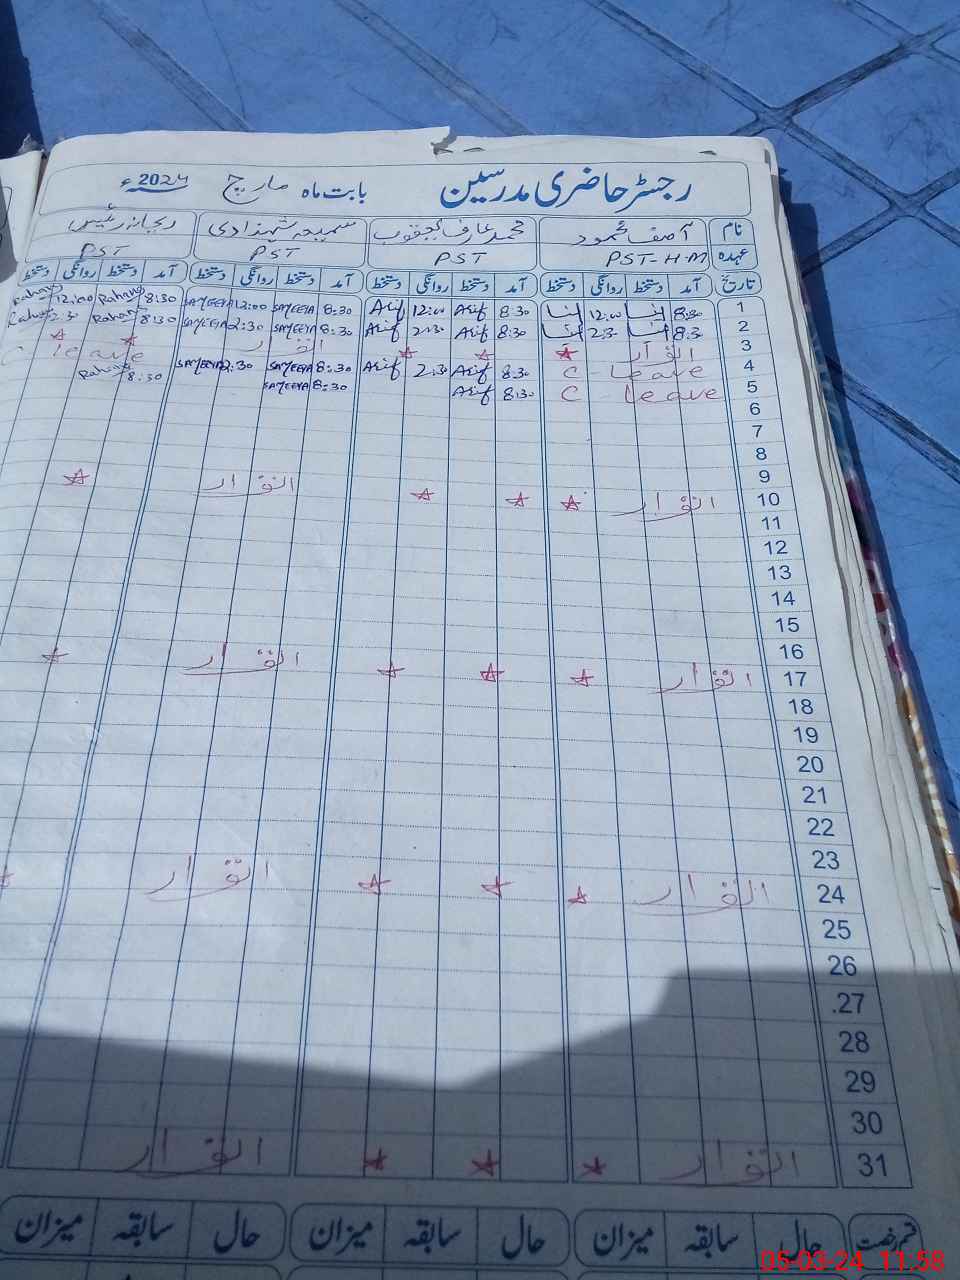 رجسٹر حاضری مدرسین بابت ماہ مارچ 2024ء
نام آصف محمود محمد عارف یعقوب سمیعہ شہزادی ریحانہ رئیس
عہدہ PST-H-M PST PST PST
تاریخ آمد دستخط روانگی دستخط آمد دستخط روانگی دستخط آمد دستخط روانگی دستخط آمد دستخط روانگی دستخط
1 8:30 12:00 8:30 Arif 12:00 Arif 8:30 SAMEEYA 12:00 SAMEEYA 8:30 Rahana 12:00 Rahana
2 8:30 2:30 8:30 Arif 2:30 Arif 8:30 SAMEEYA 2:30 SAMEEYA 8:30 Rahana 2:30 Rahana
3 اتوار اتوار
4 C leave 8:30 Arif 2:30 Arif 8:30 SAMEEYA 2:30 SAMEEYA C leave
5 C leave 8:30 Arif 8:30 SAMEEYA 8:30 Rahana
6
7
8
9
10 اتوار اتوار
11
12
13
14
15
16
17 اتوار اتوار
18
19
20
21
22
23
24 اتوار اتوار
25
26
27
28
29
30
31 اتوار اتوار
قسم رخصت حال سابقہ میزان حال سابقہ میزان حال سابقہ میزان
05-03-24 11:58